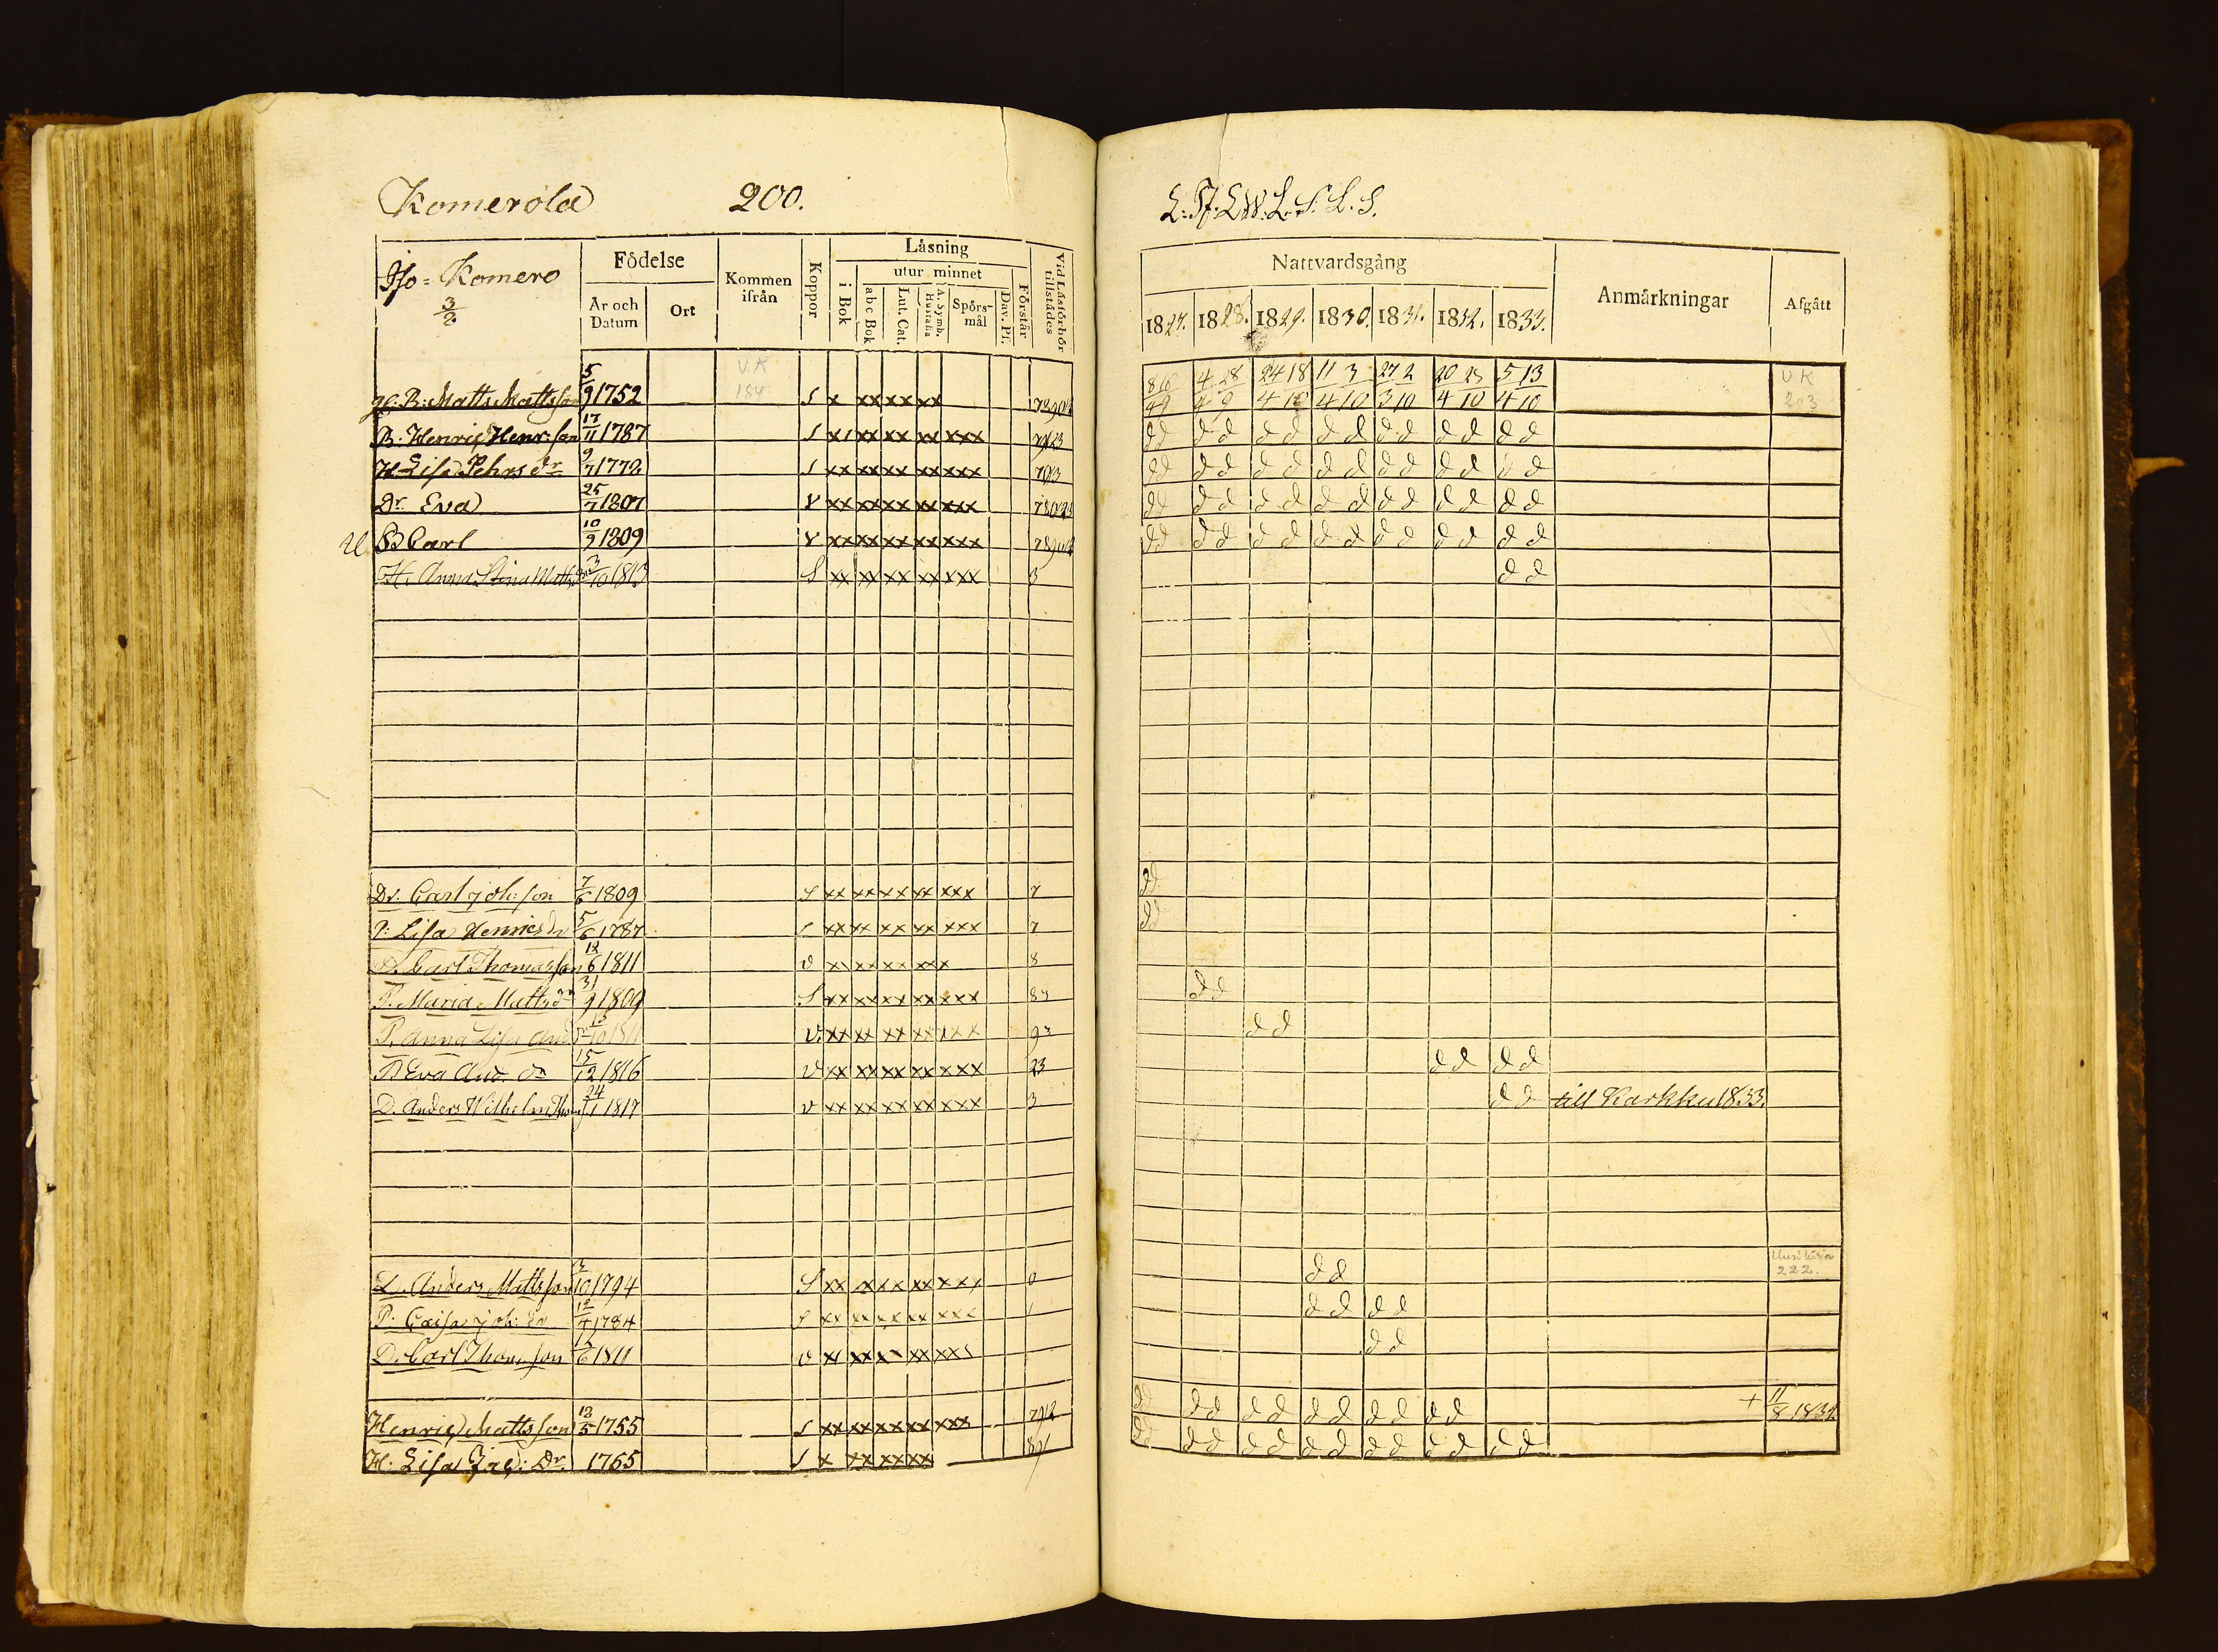 Komerola 200.
Iso=Komero
3/2
Födelse
År och Datum
Ort
Kommen ifrån
Koppor
Läsning
i Bok
utur minnet
a b c Bok
Lut. Cat.
A. Symb. Hustafla
Spörs-mål
Dav. Pf.
Förstår
Vid Läsförhör tillstådes
V.K
184
Matts Mattsson 5/9 1752 S x xx xx xx
B. Henric Henr:son 17/11 1787 S xx xx xx xxx
H Lisa Pehrs dr 9/7 1772 S xx xx xx xx xxx
Dr Eva 25/7 1807 V xx xx xx xx xxx
B Carl 10/9 1809 V xx xx xx xx xxx
H. Anna Stina Matts dr 3/10 1813 S xx xx xx xx xxx 3
Dr. Carl Joh:son 7/6 1809 S xx xx xx xx xxx 7
P: Lisa Henrics dr 5/6 1787 S xx xx xx xx xxx 7
D. Carl Thomasson 12/6 1811 v 8
P. Maria Matts dr 31/9 1809 S xx xx xx xx xxx
P. Anna Lisa And dr v. xx xx xx xx xxx
P Eva And. dr 15/12 1816 v xx xx xx xx xxx 23
D. Anders Wilhelm 24/11 1817 v xx xx xx xx xxx 3
D. Anders Mattsson 1794 S xx xx xx xx xxx 0
P: Caisa Joh: dr 12/4 1784 S xx xx xx xx xxx 1
D. Carl Thomson 12/6 1811 v
Henric Mattsson 12/5 1755 S xx xx xx xx xxx
H: Lisa dr. 1765 S x xx xx xx
L. S. L. S.
Nattvardsgång
Anmärkningar
Afgått
1827. 1828. 1829. 1830. 1831. 1832. 1833.
8 16 4 28 24 18 11 3 27 2 20 23 5 13 VK
4 9 4 9 4 10 4 10 3 10 4 10 4 10 203
d d d d d d d d d d d d d d
d d d d d d d d d d d d d d
d d d d d d d d d d d d d d
d d d d d d d d d d d d d d
d d
d d
d d
d d
d d
d d d d
d d till Karkku 1833.
Uusikirja
222.
d d
d d d d
d d
d d d d d d d d d d d d + 11/8 1832
d d d d d d d d d d d d d d